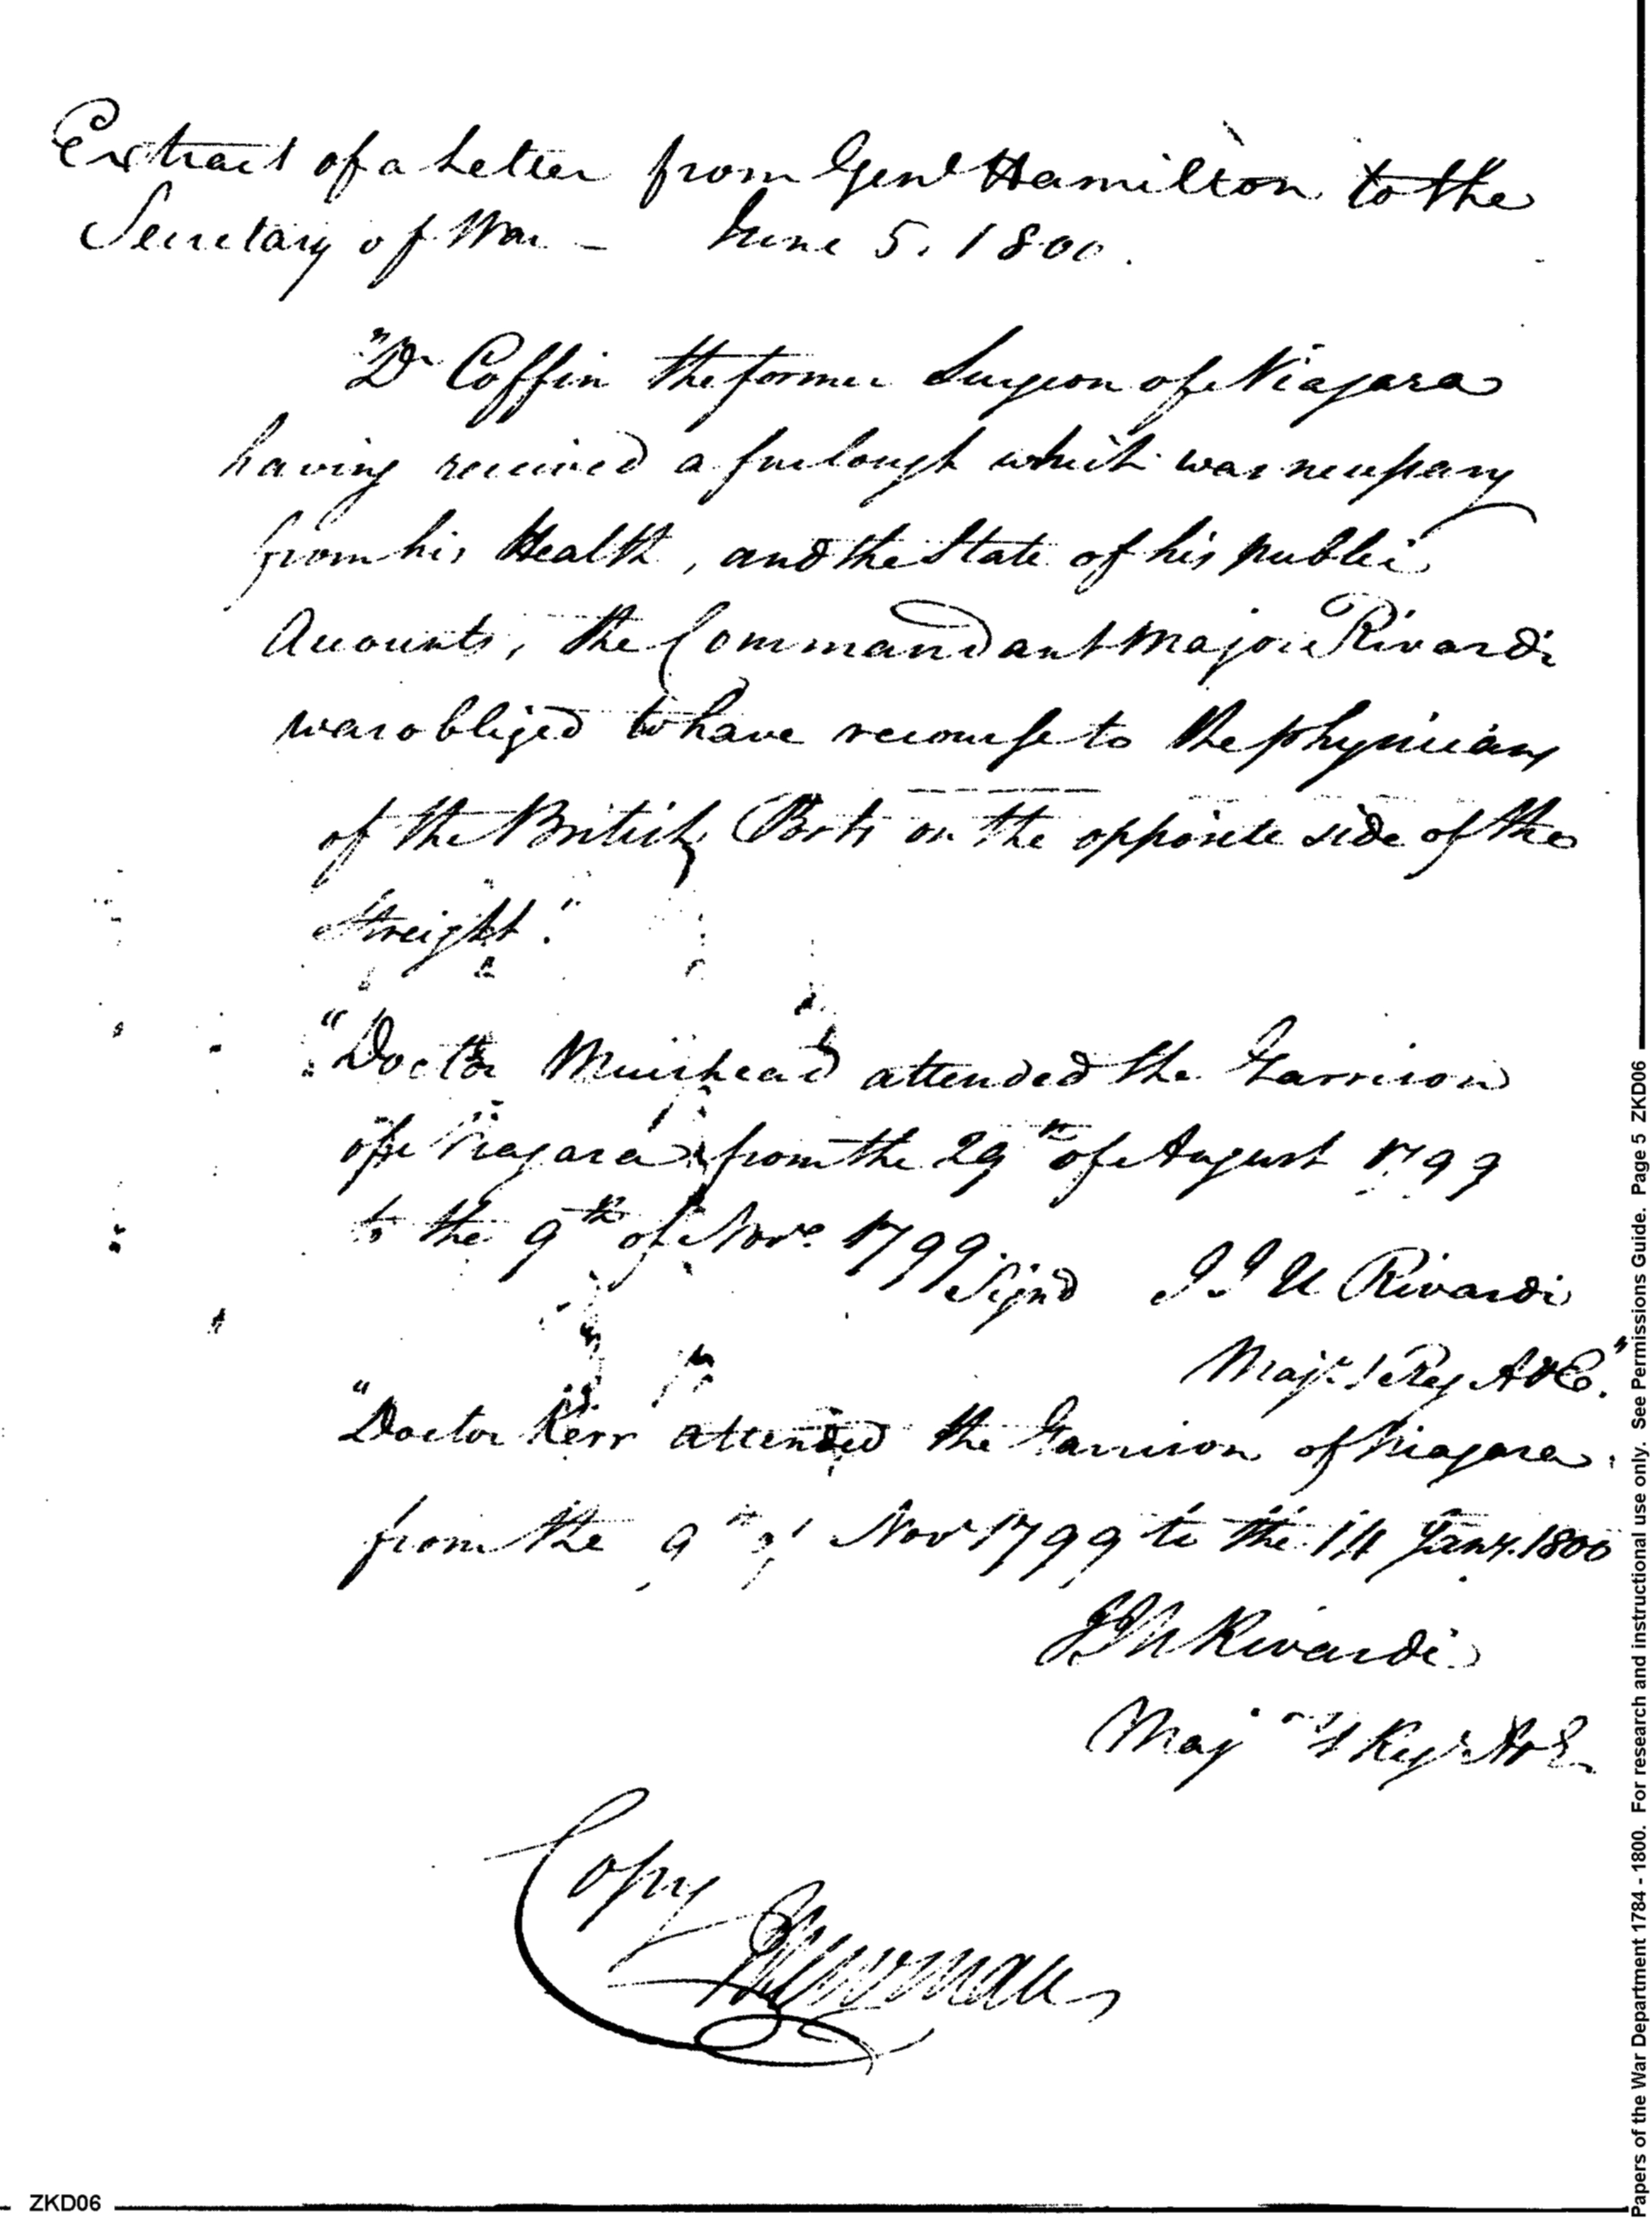 Extract of a Letter from Genl Hamilton to the
Secretary of War - June 5. 1800.
"Dr Coffin the former Surgeon of Niagara
having received a furlough which was necessary
from his Health, and the State of his public
Accounts, the Commandant Major Rivardi
was obliged to have recourse to the physicians
of the British Ports on the opposite side of the
Streight."
"Doctor Muirhead attended the Garrison
of Niagara from the 29th of August 1799
to the 9th of Nove. 1799
Signd J J U Rivardi
Majr. 1 Reg A & E."
"Doctor Kerr attended the Garrison of Niagara
from the 9th of Novr 1799 to the 14 Jany. 1800
J J U Rivardi
Majr 1 Regt A & E
Copy
Papers of the War Department 1784 - 1800. For research and instructional use only. See Permissions Guide. Page 5 ZKD06
ZKD06